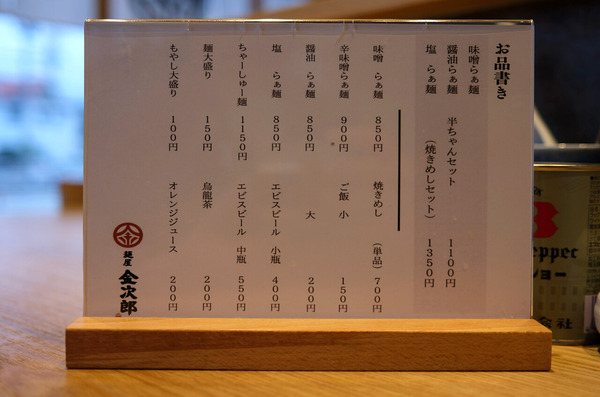 お品書き
味噌らぁ麺
醤油らぁ麺 半ちゃんセット 1100円
塩 らぁ麺 (焼きめしセット) 1350円
味噌 らぁ麺 850円
辛味噌らぁ麺 900円
醤油 らぁ麺 850円
塩 らぁ麺 850円
ちゃーしゅー麺 1150円
麺大盛り 150円
もやし大盛り 100円
焼きめし (単品) 700円
ご飯 小 150円
大 200円
エビスビール 小瓶 400円
エビスビール 中瓶 550円
烏龍茶 200円
オレンジジュース 200円
麺屋 金次郎
epper
ショー
会社